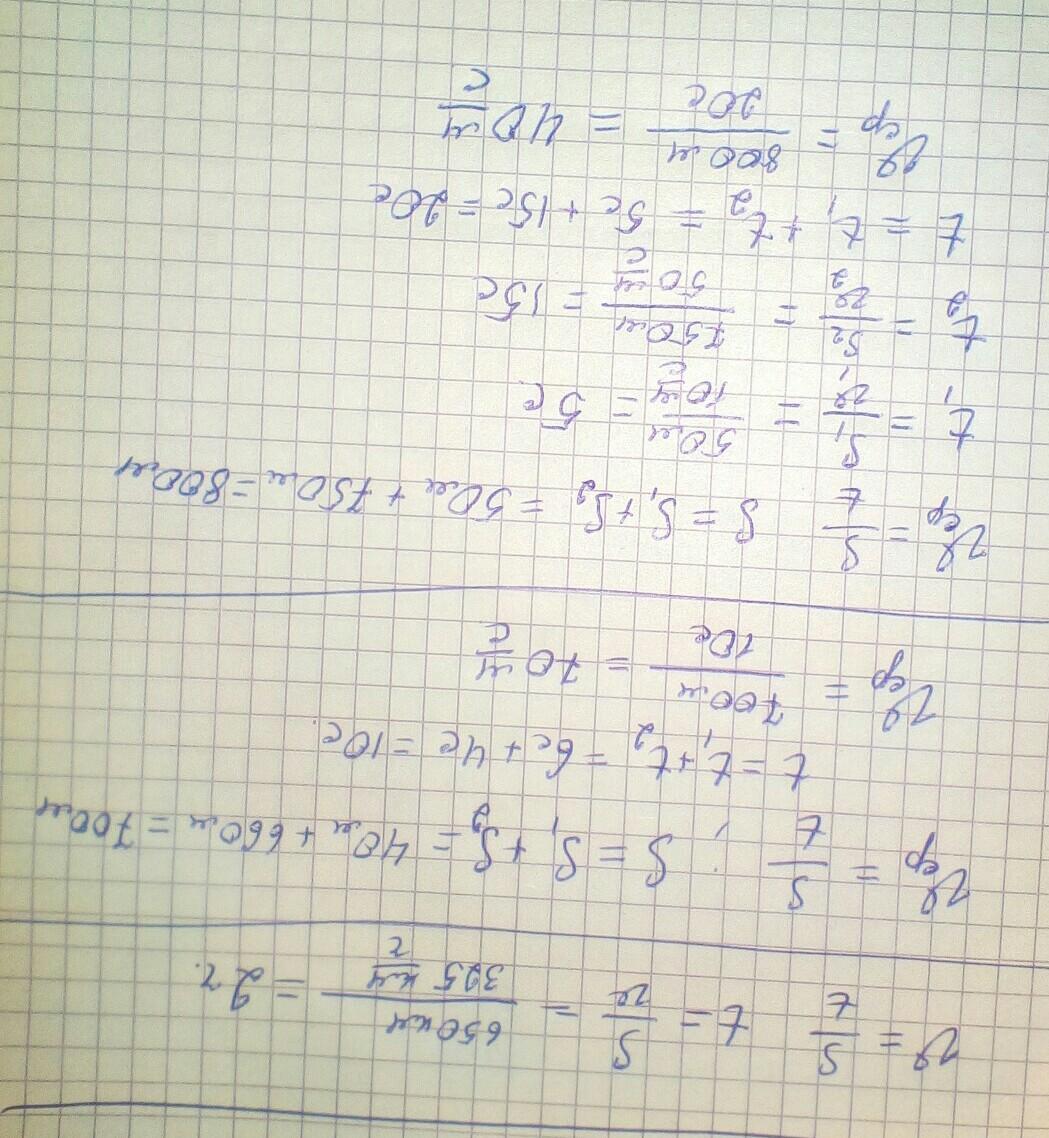 v = S/t t = S/v = 650км / 325 км/ч = 2ч.
vср = S/t ; S = S₁ + S₂ = 40м + 660м = 700м
t = t₁ + t₂ = 6с + 4с = 10с.
vср = 700м / 10с = 70 м/с
vср = S/t S = S₁ + S₂ = 50м + 750м = 800м
t₁ = S₁/v₁ = 50м / 10 м/с = 5с.
t₂ = S₂/v₂ = 750м / 50 м/с = 15с
t = t₁ + t₂ = 5с + 15с = 20с
vср = 800м / 20с = 40 м/с